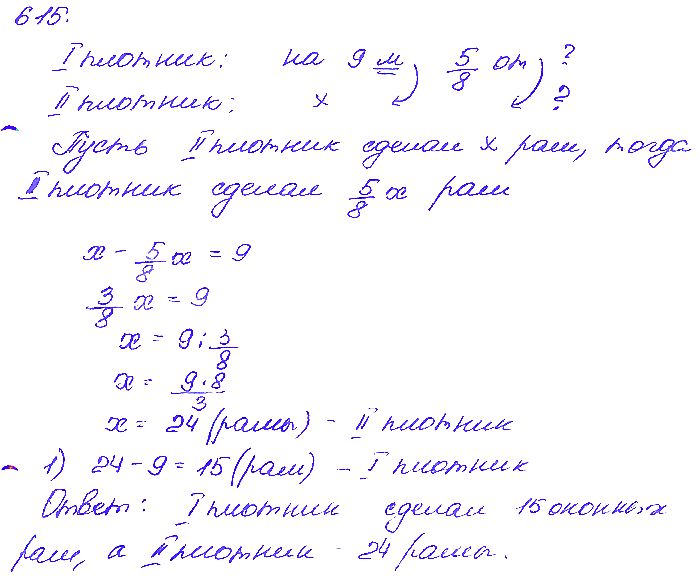 615.
I плотник: на 9 м 5/8 от ?
II плотник: x ?
Пусть II плотник сделал x рам, тогда
I плотник сделал 5/8 x рам
x - 5/8 x = 9
3/8 x = 9
x = 9 : 3/8
x = 9·8/3
x = 24 (рамы) - II плотник
1) 24 - 9 = 15 (рам) - I плотник
Ответ: I плотник сделал 15 оконных
рам, а II плотник - 24 рамы.